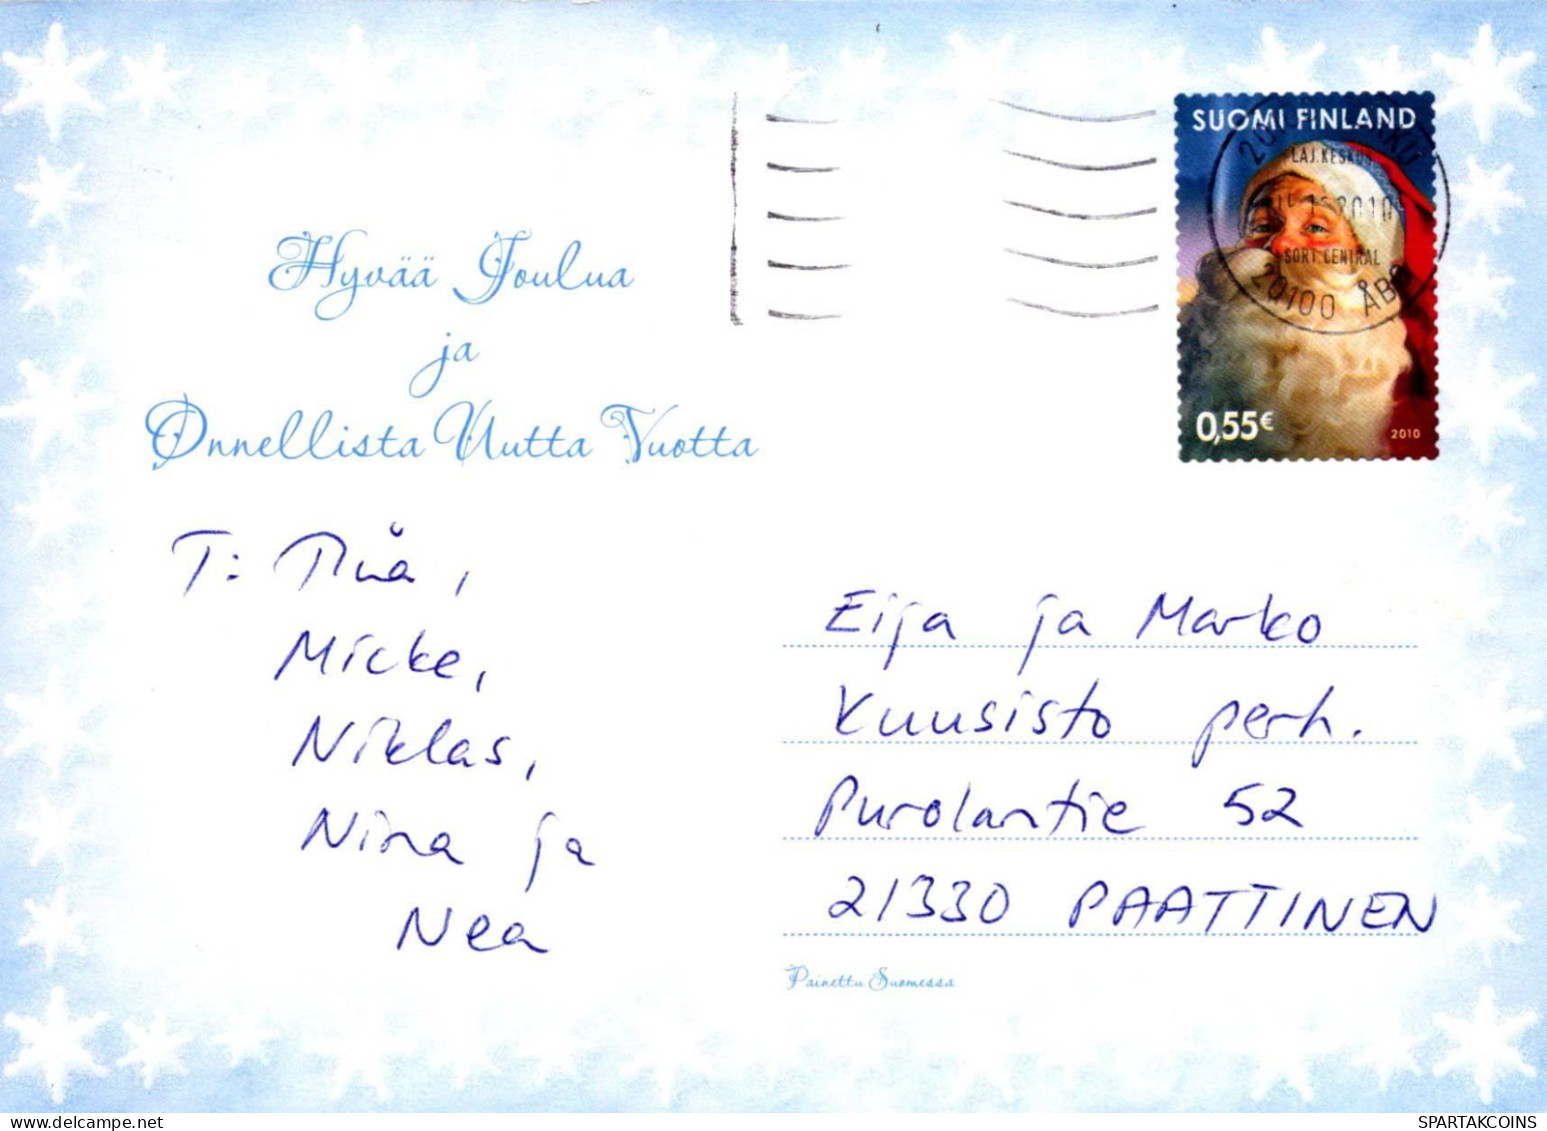 SUOMI FINLAND
LAJ.KESKUS
2010
SORT.CENTRAL
20100 ÅBO
0,55€
2010
Hyvää Joulua
ja
Onnellista Uutta Vuotta
T:
Micke,
Niklas,
Nina ja
Nea
Eija ja Marko
Kuusisto perh.
Purolantie 52
21330 PAATTINEN
Painettu Suomessa
HIPPOSTCARD.COM/STORE/SPARTAKCOINS